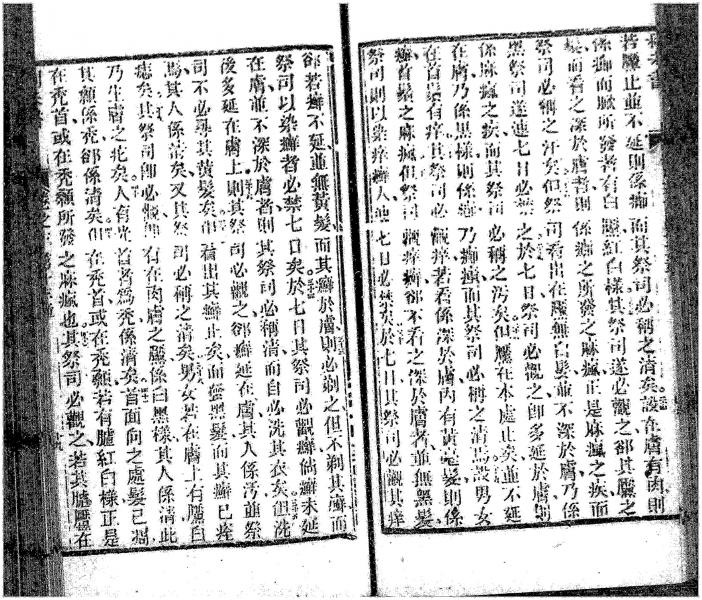 若黶止並不延則係癤而其祭司必稱之清矣設在膚有肉則
係癤而厥所發者有白黶紅白樣其祭司遂必觀之卻其黶之
髮而看之深於膚者則係癤之所發之麻瘋正是麻瘋之疾而
祭司必稱之汙矣但祭司看出在黶無白髮並不深於膚乃係
黑祭司遂連七日必禁之於七日祭司必觀之卽多延於膚則
係麻瘋之疾而其祭司必稱之汚矣但黶在本處止矣並不延
在膚乃係黑樣則係癤乃癤痕而其祭司必稱之清焉設男女
在首鬚有痒其祭司必觀痒若看係深於膚內有黃毫髮則係
癬首鬚之麻瘋但祭司觀痒癬卻不看之深於膚者並無黑髮
祭司則以染痒癬人他七日必禁矣於七日其祭司必觀其痒
卻若癬不延並無黃髮而其癬於膚則必剃之但不剃其癬而
祭司以染癬者必禁七日矣於七日其祭司必觀癬倘癬未延
在膚並不深於膚者則其祭司必稱清而自必洗其衣矣但洗
後多延在膚上則其祭司必觀之卻癬延在膚其人係汚並祭
司不必尋其黃髮矣但看出其癬止矣而黑髮而其癬已痊
焉其人係清矣又其祭司必稱之清矣男女若在膚上有黶白
痣矣其祭司卽必觀之若在肉膚之黶係白黑樣其人係清此
乃生膚之疕矣人有光首者為禿係清矣首面向之處髮已凋
其顱係禿卻係清矣但在禿首或在禿顱若有黶紅白樣正是
在禿首或在禿顱所發之麻瘋也其祭司必觀之若其黶在